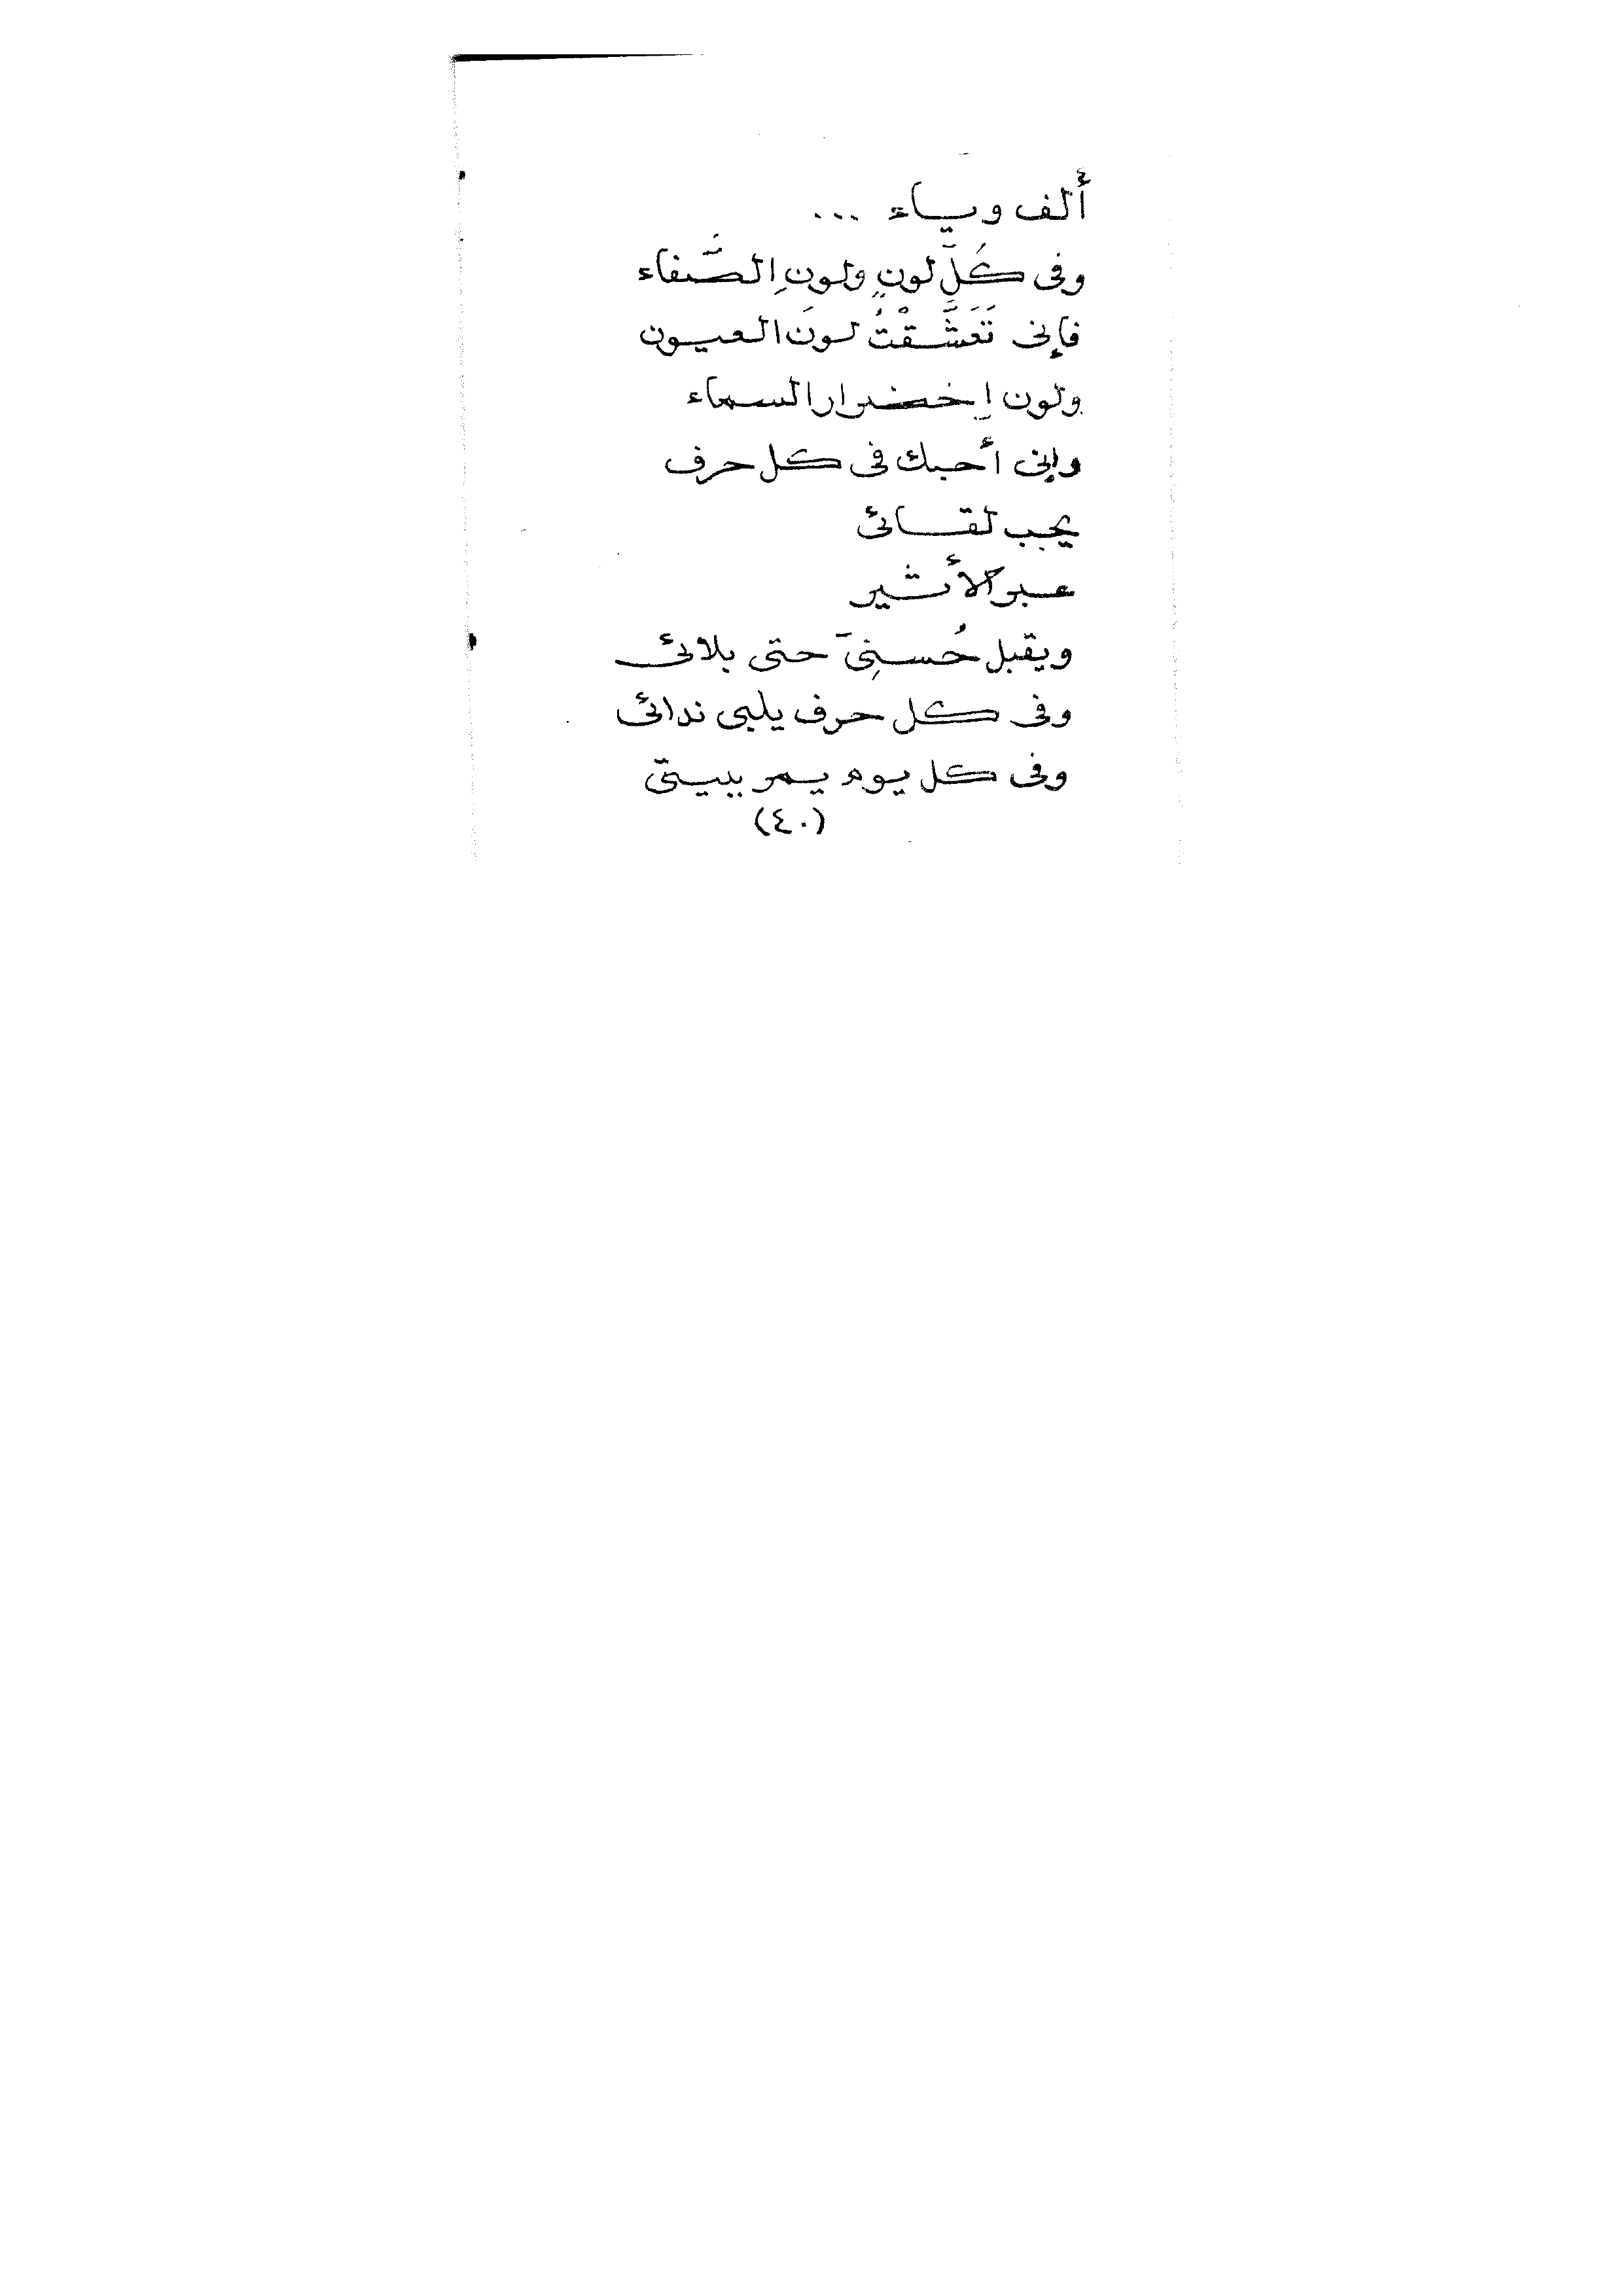 ألف وياء ...
وفى كُلِّ لونٍ ولونِ الصَّفاء
فإنى تَعَشَّقْتُ لونَ العيون
ولون اِخضرار السماء
وإنى أحبك فى كل حرف
يحب لقائى
عبر الأثير
ويقبل حُسنِىَ حتى بلائى
وفى كل حرف يلبى ندائى
وفى كل يوم يمر ببيتى
(٤٠)